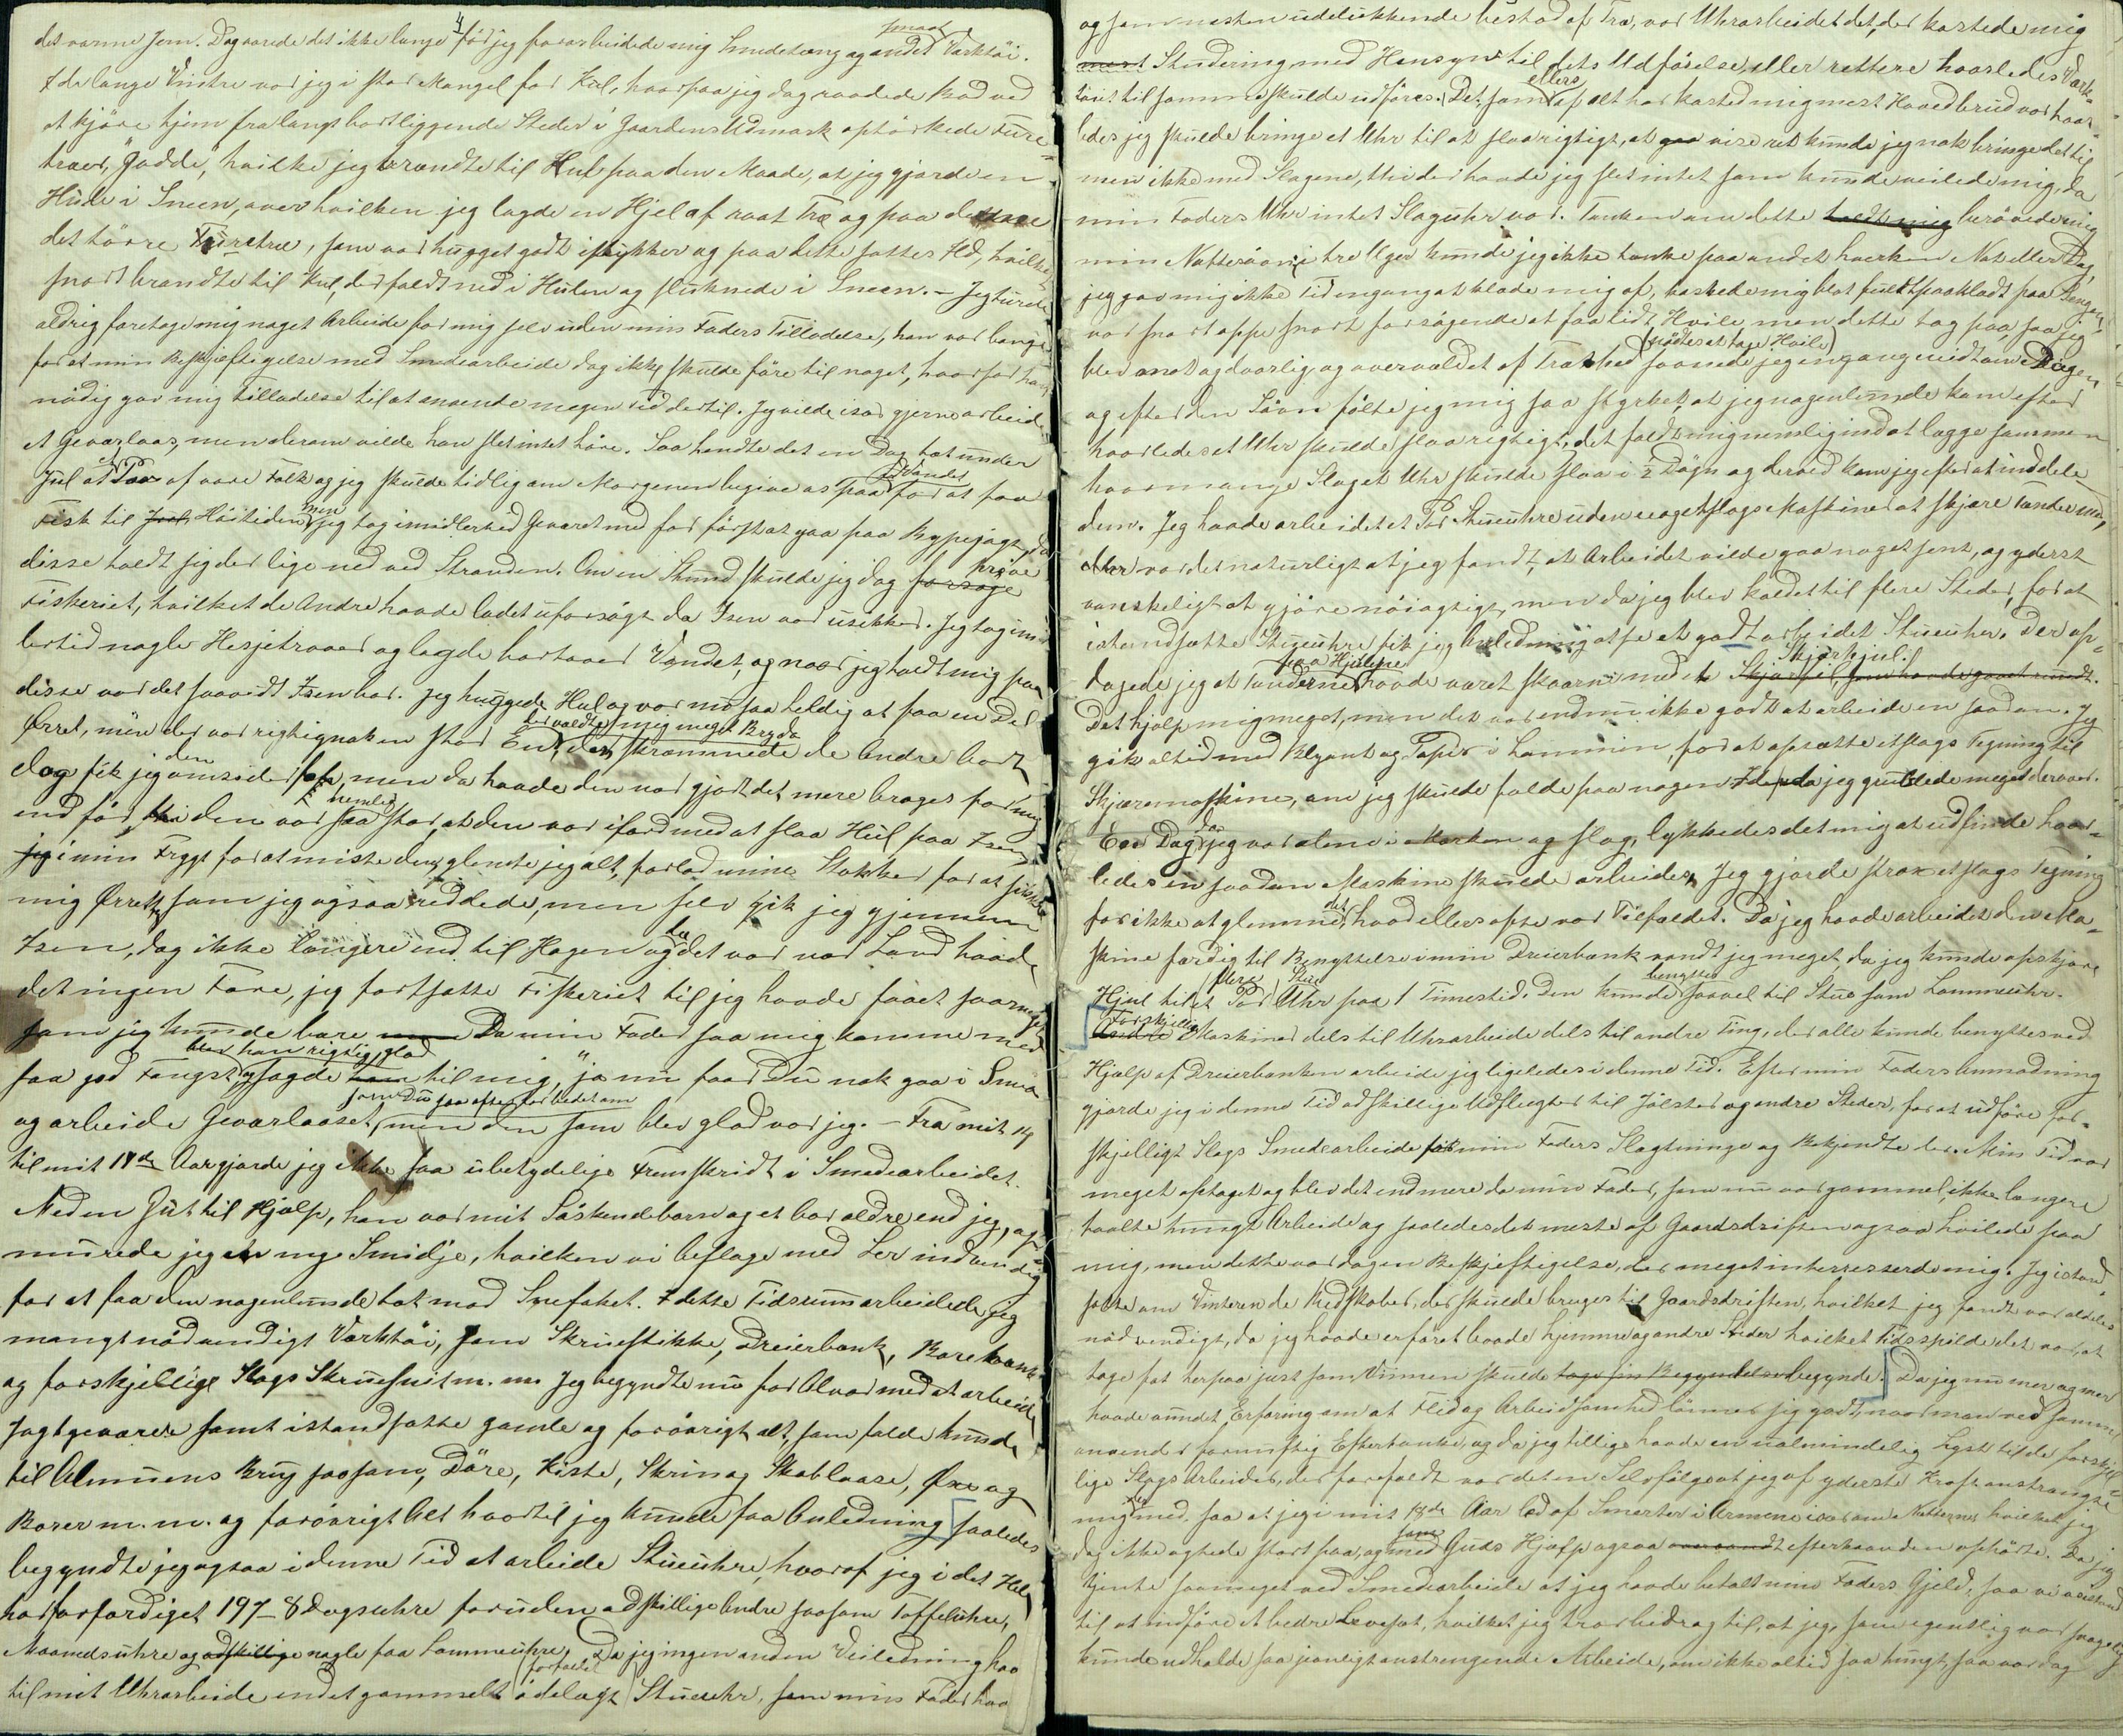 det varme Jern. Dog varede det ikke længe før jeg forarbeidede mig Smedetang og andet smaat Værktøi.
I de lange Vintre var jeg i stor Mangel for Kul, hvorpaa jeg dog raadede Bod ved
at kjøre hjem fra langt bortliggende Steder i Gaardens Udmark optørkede Fure-
træer, "Gadde", hvilke jeg brændte til Kul paa den Maade, at jeg gjorde en
Hule i Sneen, over hvilken jeg lagde en Hjel af raat Træ og paa denne
det tørre Furetræ, som var hugget godt istykker og paa dette sattes Ild, hvilket
snart brændte til Kul, der faldt ned i Hulen og sluknede i Sneen. – Jeg turde
aldrig foretage mig noget Arbeide for mig selv uden min Faders Tilladelse, han var bange
for at min Beskjæftigelse med Smedearbeide dog ikke skulde føre til noget, hvorfor han
nødig gav mig tilladelse til at anvende megen Tid dertil. Jeg vilde især gjerne arbeide
et Geværlaas, men derom vilde han slet intet høre. Saa hendte det en Dag tæt under
Jul at et Par af vore Folk og jeg skulde tidlig om Morgenen begive os paa Vandet for at faa
Fisk til Høitiden, men jeg tog imidlertid Geværet med for først at gaa paa Rypejagt, da
disse holdt sig der lige ned ved Stranden. Om en Stund skulde jeg dog forsøge prøve
Fiskeriet, hvilket de Andre havde ladet uforsøgt da Isen var usikker. Jeg tog imid-
lertid nogle Hesjetraaer og lagde bortover Vandet, og naar jeg holdt mig paa
disse var det saavidt Isen bar. Jeg huggede Hul og var nu saa heldig at faa en Del
Ørret, men der var rigtignok en stor En, der voldte mig meget Bryde, den skræmmede de Andre bort
dog fik jeg den omsider op, men da havde den nær gjort det mere brages for mig
end før, den var nemlig saa stor, at den var ifærd med at slaa Hul paa Isen
i min Frygt for at miste den, glemte jeg alt, forlod mine Stokker for at sikkre
mig Ørreten, som jeg ogsaa reddede, men selv gik jeg gjennem
Isen, dog ikke længere end til Hagen og da det var nær Land havde
det ingen Fare, jeg fortsatte Fiskeriet til jeg havde faaet saameget
som jeg kunde bære. Da min Fader saa mig komme med
saa god Fangst blev han rigtig glad og sagde til mig, "ja nu faar Du nok gaa i Smien
og arbeide Geværlaaset, som Du saa ofte har bedet om, men den som blev glad var jeg. – Fra mit 14
til mit 18de Aar gjorde jeg ikke saa ubetydelige Fremskridt i Smedearbeidet.
Med en Gut til Hjælp, han var mit Søskendebarn og et Par aldre end jeg, op-
murede jeg en nye Smidje, hvilken vi beslage med Ler indvendig
for at faa den nogenlunde tæt mod Snefoket. I dette Tidsrum arbeidede jeg
mangt nødvendigt Værktøi, som Skruestikke, Dreierbænk, Borebænk
og forskjellige Slags Skruesnit m. m. Jeg begyndte nu for Alvor med at arbeide
Jagtgeværer samt istandsatte gamle og forøvrigt alt, som falde kunde
til Almuens Brug saasom, Døre, Kiste, Skrin og Skablaase, Øxe og
Borer m. m. og forøvrigt Alt hvortil jeg kunde faa Anledning saaledes
begyndte jeg ogsaa i denne Tid at arbeide Stueuhre, hvoraf jeg i det Hele
har forfærdiget 197 – 8 Dagsuhre foruden adskillige Andre saasom Taffeluhre,
Maanedsuhre og adskillige nogle faa Lommeuhre. Da jeg ingen anden Veiledning hav
til mit Uhrarbeide end et gammelt forfaldt ødelagt Stueuhr, som min Fader hav
og som næsten udelukkende bestod af Træ, var Uhrarbeidet det, der kostede mig
mest Studering med Hensyn til dets Udførelse, eller rettere hvorledes Værk-
tøiet til samme skulde udføres. Det som ellers af alt har kostet mig mest Hovedbrud var hvor-
ledes jeg skulde bringe et Uhr til at slaa rigtigt, at vise ret kunde jeg nok bringe det til
men ikke med Slagene, thi der havde jeg slet intet som kunde veilede mig, da
min Faders Uhr intet Slaguhr var. Tanken om dette holdt mig berøvede mig
min Nattesøvn i tre Uger kunde jeg ikke tænke paa andet hverken Nat eller Dag,
jeg gav mig ikke Tid engang at klæde mig af, kastede mig blot fuldt paaklædt paa Sengen,
var snart oppe snart forsøgende at faa lidt Hvile men dette tog paa, saa jeg
blev mat og daarlig og overvældet af Træthed (nødtes at tage Hvile) sovnede jeg engang midt om Dagen
og efter den Søvn følte jeg mig saa styrket, at jeg nogenlunde kom efter
hvorledes et Uhr skulde slaa rigtigt, det faldt mig nemlig ind at lægge sammen
hvormange Slag et Uhr skulde slaa i ½ Døgn og derved kom jeg efter at inddele
dem. Jeg havde arbeidet et Par Stueuhre uden noget slags Maskiner at skjære Tænder med,
var det naturligt at jeg fandt, at Arbeidet vilde gaa noget sent, og yderst
vanskeligt at gjøre nøiagtigt, men da jeg blev kaldet til flere Steder, for at
istandsætte Stueuhre fik jeg Anledning at se et godt arbeidet Stueuhr. Der op-
dagede jeg at Tænderne paa Hjulene havde været skaarne med et Skjærhjul.
Det hjalp mig meget, men det var endnu ikke godt at arbeide en saadan. Jeg
gik altid med Blyant og Papir i Lommen, for at opsætte et slags Tegning til
Skjæremaskine, om jeg skulde falde paa nogen Ide, da jeg grublede meget derover.
En Dag da jeg var alene i Marken og slog, lykkedes det mig at udfinde hvor-
ledes en saadan Maskine skulde arbeides. Jeg gjorde strax et slags Tegning
for ikke at glemme det, hvad ellers ofte var Tilfældet. Da jeg havde arbeidet den Ma-
skine færdig til Benyttelse i min Dreierbænk vandt jeg meget, da jeg kunde opskjære
Hjul til et Par flere Stue Uhr paa 1 Times tid. Den kunde benyttes saavel til Stue som Lommeuhr.
Forskjellige Maskiner dels til Uhrarbeide dels til andre Ting, der alle kunde benyttes ved
Hjælp af Dreierbænken arbeide jeg ligeledes i denne Tid. Efter min Faders Anmodning
gjorde jeg i denne Tid adskillige Udflugter til Jølster og andre Steder, for at udføre for-
skjelligt Slags Smedearbeide for min Faders Slægtninge og Bekjendte der. Min Tid var
meget optaget og blev det end mere da min Fader, som nu var gammel, ikke længere
taalte tungt Arbeide og saaledes det meste af Gaardsdriften ogsaa hvilede paa
mig, men dette var dog en Beskjæftigelse, der meget interesserede mig. Jeg istand-
satte om Vinteren de Redskaber, der skulde bruges til Gaardsdriften, hvilket jeg fandt var aldeles
nødvendigt, da jeg havde erfaret baade hjemme og andre Steder hvilket Tidsspilde det var, at
tage fat herpaa just som Vinnen skulde tage sin Begyndelse begynde. Da jeg nu mer og mer
havde vundet Erfaring om at Flid og Arbeidsomhed lønner sig godt, naar man ved samme
anvender fornuftig Eftertanke, og da jeg tillige havde en ualmindelig Lyst til de forskjel-
lige Slags Arbeider, der forefaldt var det en Selvfølge at jeg af yderste Kraft anstrængte
mig med, saa at jeg i mit 18de Aar led af Smerter i Armene især om Nætterne hvilket jeg
dog ikke agtede stort paa, og som med Guds Hjælp ogsaa efterhaanden ophørte. Da jeg
tjente saameget ved Smedearbeide at jeg havde betalt min Faders Gjeld, saa vi
til at indføre et bedre Levesæt, hvilket jeg tror bidrog til, at jeg, som egentlig var svagelig
kunde udholde saa jævnligt anstrengende Arbeide, om ikke altid saa tungt, saa var dog